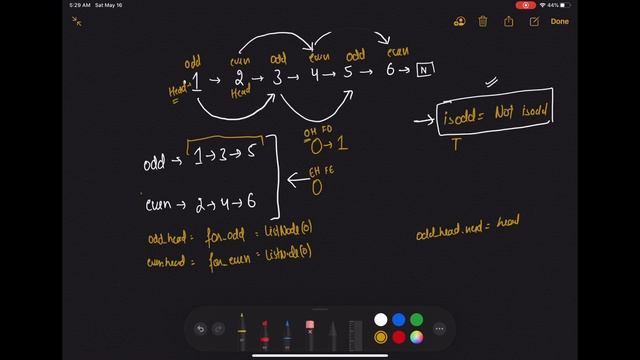 5:29 AM Sat May 16
44%
Done
odd even odd even odd even
Head 1 → 2 → 3 → 4 → 5 → 6 → N
Head
→ isodd = Not isodd
T
OH FO
0 → 1
odd → 1 → 3 → 5
EH FE
0
even → 2 → 4 → 6
odd_head = for_odd = ListNode(0)
even_head = for_even = ListNode(0)
odd_head.next = head